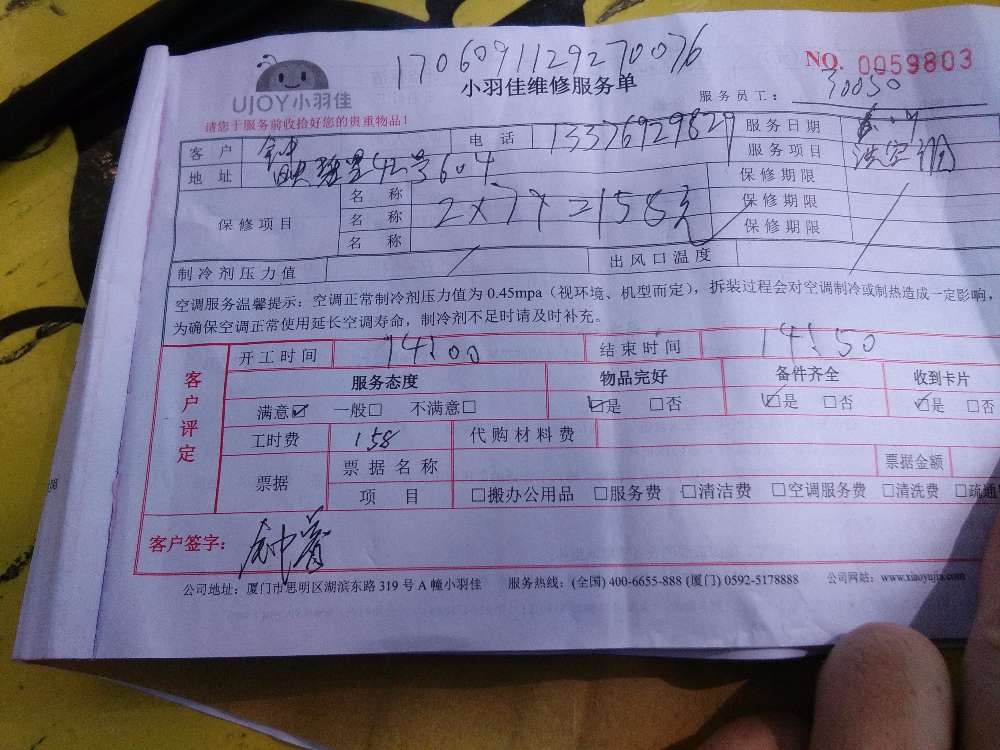 1706091129270076
NO. 0059803
UJOY小羽佳
小羽佳维修服务单
服务员工： 30050
请您于服务前收拾好您的贵重物品！
客 户 钟 电 话 13376929829 服务日期
地 址 号604 服务项目 洗空调
保修项目 名 称 保修期限
名 称 2×79=158元 保修期限
名 称 保修期限
制冷剂压力值 出风口温度
空调服务温馨提示：空调正常制冷剂压力值为 0.45mpa（视环境、机型而定），拆装过程会对空调制冷或制热造成一定影响，
为确保空调正常使用延长空调寿命，制冷剂不足时请及时补充。
客户评定
开工时间 14:00 结束时间 14:50
服务态度 物品完好 备件齐全 收到卡片
满意☑ 一般□ 不满意□ ☑是 □否 ☑是 □否 ☑是 □否
工时费 158 代购材料费
票据 票据名称 票据金额
项 目 □搬办公用品 □服务费 □清洁费 □空调服务费 □清洗费 □疏通
客户签字：
公司地址：厦门市思明区湖滨东路 319 号 A 幢小羽佳 服务热线：(全国) 400-6655-888 (厦门) 0592-5178888 公司网站：www.xiaoyujia.com